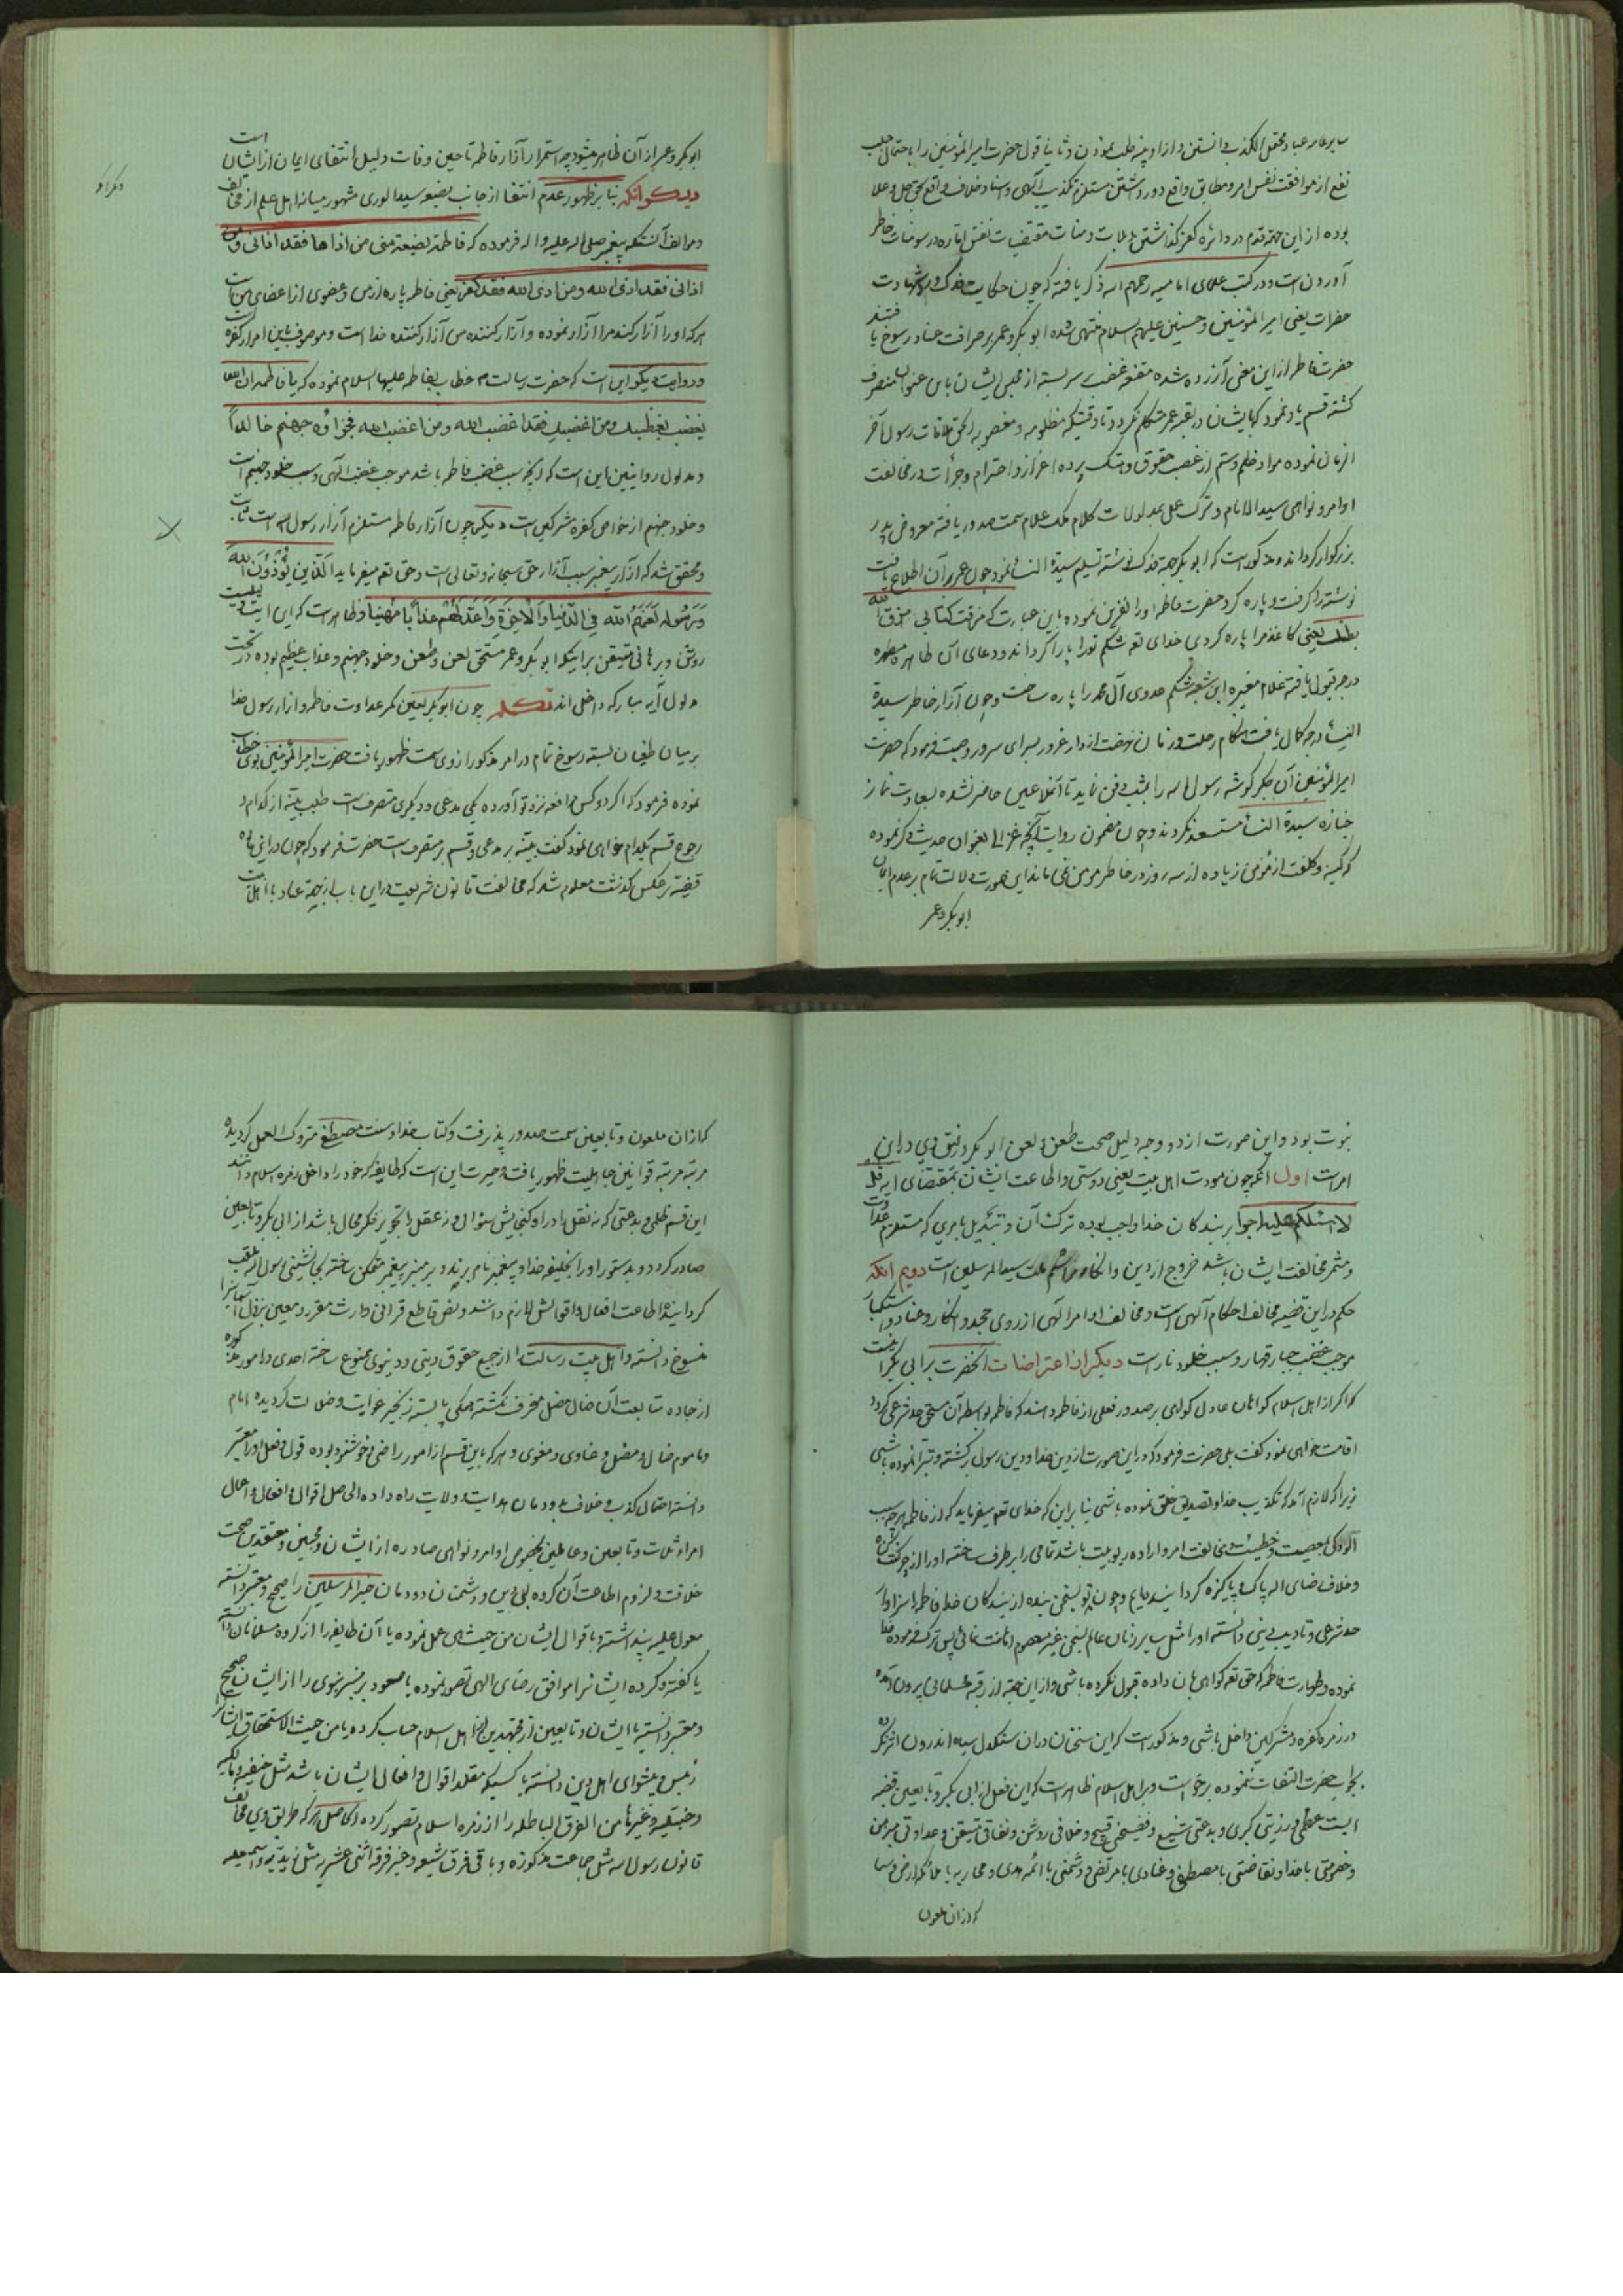 سایر عباد محتمل الکذب دانستن و از او بینه طلب نمودن و ثانیا قول حضرت امیر المؤمنین را باحتمال جلب
نفع از موافقت نفس امر و مطابق واقع دور داشتن مستلزم تکذیب الهی و اسناد خلاف واقع بحق جل و علا
بوده از این جهة قدم در دائره کفر گذاشتن و لات و منات مقتضیات نفس اماره در سومنات خاطر
آوردن است و در کتب علمای امامیه رحمهم الله ذکر یافته که چون حکایت فدک و شهادت
حضرات یعنی امیر المؤمنین و حسنین علیهم السلام منتهی شده ابو بکر و عمر بر صرافت عناد رسوخ یافتند
حضرت فاطمه از این معنی آزرده شده مقنعه غضب بر سر بسته از مجلس ایشان باین عنوان منصرف
گشته قسم یاد نمود که با ایشان در بقیه عمر متکلم نگردد تا وقتیکه مظلومه و مغصوبه الحق ملاقات رسول آخر
الزمان نموده مواد ظلم و ستم از غصب حقوق و هتک پرده اعزاز و احترام و جرأت در مخالفت
اوامر و نواهی سید الانام و ترک عمل بمدلولات کلام ملک علام سمت صدور یافته معروض پدر
بزرگوار گرداند و مذکور است که ابو بکر جهة فدک نوشته تسلیم سیدة النساء نمود چون عمر بر آن اطلاع یافت
نوشته را گرفت و پاره کرد حضرت فاطمه او را نفرین نموده باین عبارت که مزقت کتابی مزق الله
بطنک یعنی کاغذ مرا پاره کردی خدای تعه شکم تو را پاره گرداند و دعای آن طاهره مطهره
درجه قبول یافته غلام مغیره ابن شعبه شکم عدوی آل محمد را پاره ساخت و چون آزار خاطر سیدة
النساء درجه کمال یافت هنگام رحلت و زمان نهضت از دار غرور بسرای سرور وصیت فرمود که حضرت
امیر المؤمنین آن جگر گوشه رسول الله را بشب دفن نماید تا آن ملاعین حاضر نشده بسعادت نماز
جنازه سیدة النساء مستسعد نگردند و چون مضمون روایت آنچه غزالی بعنوان حدیث ذکر نموده
که کینه و کلفت از مؤمن زیاده از سه روز در خاطر مومن نمی ماند این صورت دلالت تمام بر عدم ایمان
ابو بکر و عمر
ابو بکر و عمر از آن ظاهر میشود چه استمرار آزار فاطمه تا حین وفات دلیل انتفای ایمان از ایشان است
دیگر آنکه بنا بر ظهور عدم انتفا از جانب بضعه سید الوری مشهور میانه اهل علم از مخالف
و موالف آنستکه پیغمبر صلی الله علیه و اله فرموده که فاطمة بضعة منی من اذاها فقد اذانی و من
اذانی فقد اذی الله و من اذی الله فقد کفر یعنی فاطمه پاره از من و عضوی از اعضای من است
هر که او را آزار کند مرا آزار نموده و آزار کننده من آزار کننده خدا است و موصوف باین امر از کفره است
و روایت دیگر این است که حضرت رسالت ص خطاب بفاطمه علیها السلام نموده که یا فاطمه ان الله
یغضب بغضبک و من اغضبک فقد اغضب الله و من اغضب الله فجزاؤه جهنم خالدا
و مدلول روایتین این است که آنچه سبب غضب فاطمه باشد موجب غضب الهی و سبب خلود جهنم است
و خلود جهنم از خواص کفره مشرکین است دیگر چون آزار فاطمه مستلزم آزار رسول الله است ثابت
و محقق شد که آزار پیغمبر سبب آزار حق سبحانه و تعالی است و حق تعه میفرماید الَّذین یُؤْذُونَ الله
وَ رَسُولَه لَعَنَهُمُ الله فِی الدُّنیا وَ الْاخِرَةِ وَ اَعَدَّ لَهُمْ عَذاباً مُهیناً و ظاهر است که این آیت بینتیست
روشن و برهانی متیقن بر اینکه ابو بکر و عمر مستحق لعن و طعن و خلود جهنم و عذاب عظیم بوده در تحت
مدلول آیه مبارکه داخل اند تکمله چون ابو بکر لعین کمر عداوت فاطمه و آزار رسول خدا
بر میان طغیان بسته رسوخ تمام در امر مذکور از وی سمت ظهور یافت حضرت امیر المؤمنین بوی خطاب
نموده فرمود که اگر دو کس مرافعه نزد تو آورده یکی مدعی و دیگری متصرف است طلب بینه از کدام و
رجوع قسم بکدام خواهی نمود گفت بینه بر مدعی و قسم بر متصرف است حضرت فرمود که چون در این ماده
قضیه بر عکس گذشت معلوم شد که مخالفت قانون شریعت در این باب از جهة عناد با اهل بیت
نبوت بود و این صورت از دو وجه دلیل صحت طعن و لعن ابو بکر و رفیق وی در این
امر است اول آنکه چون مودت اهل بیت یعنی دوستی و اطاعت ایشان بمقتضای آیه قل
لا اسئلکم علیه اجرا بر بندگان خدا واجب بوده ترک آن و تبدیل بامری که مستلزم عداوت
و مثمر مخالفت ایشان باشد خروج از دین و انکار ملت سید المرسلین است دویم آنکه
حکم در این قضیه مخالف احکام آلهی است و مخالف اوامر آلهی از روی جحود و انکار و عناد و استکبار
موجب غضب جبار قهار و سبب خلود نار است دیگر از اعتراضات آنحضرت بر ابی بکر اینست
که اگر از اهل اسلام گواهان عادل گواهی بر صدور فعلی از فاطمه دهند که فاطمه بواسطه آن مستحق حد شرعی گردد
اقامت خواهی نمود گفت بلی حضرت فرمود که در این صورت از دین خدا و دین رسول برگشته و تبرا نموده باشی
زیرا که لازم آید که تکذیب خدا و تصدیق خلق نموده باشی بنا بر این که خدای تعه میفرماید که از فاطمه هر چه سبب
آلودگی معصیت و خطیئت و مخالفت امر و اراده ربوبیت باشد تمامی را بر طرف ساخته او را از چرک گناه
و خلاف رضای اله پاک و پاکیزه گردانیده‌ایم و چون تو بسخن بنده از بندگان خدا فاطمه را سزاوار
حد شرعی و تادیب دینی دانسته او را مثل سایر زنان عالم بسخن غیر معصوم اهانت نمائی پس ترک فرموده خدا
نموده و طهارت فاطمه که حق تعه گواهی بآن داده قبول نکرده باشی و از این جهة از رقبه مسلمانی بیرون آمده
در زمره کفره و مشرکین داخل باشی و مذکور است که این سخنان در آن سنگدل سیاه اندرون اثر نکرده
بجواب حضرت التفات ننموده برخواست و بر اهل اسلام ظاهر است که این فعل از ابی بکر و تابعین قضیه
ایست عظمی و رزیتی کبری و بدعتی شنیع و فضیحتی قبیح و خلافی روشن و نفاقی متیقن و عداوتی مبرهن
و خصومتی با خدا و نقاضتی با مصطفی و عنادی با مرتضی و دشمنی با ائمه هدی و محاربه با ملائکه ارض و سما
که از آن ملعون
که از آن ملعون و تابعین سمت صدور پذیرفت و کتاب خدا و سنت مصطفی متروک العمل گردیده
مرتبه مرتبه قوانین جاهلیت ظهور یافت و حیرت این است که طایفه که خود را داخل زمره اسلام دانند
این قسم ظلمی و بدعتی که نه نقل را در او گنجایش سئوال و نه عقل را تجویز فکر محال باشد از ابی بکر و تابعین
صادر گردد و بدستور او را بخلیفه خدا و پیغمبر نام برند و بر منبر پیغمبر متمکن ساخته بجانشینی رسول الله ملقب
گردانیده اطاعت افعال و اقوالش لازم دانند و نص قاطع قرانی و ارث مقرر و معین بنزول آسمانی را
منسوخ دانسته و اهل بیت رسالت را از جمیع حقوق دینی و دنیوی ممنوع ساخته احدی در امور مذکوره
از جاده متابعت آن ضال مضل منحرف نگشته همگی پا بسته زنجیر غوایت و ضلالت گردیده امام
و ماموم ضال و مضل و غاوی و مغوی و هر که باین قسم از امور راضی و خوشنود بوده قول و فعل او را معتبر
دانسته احتمال کذب و خلاف بدودمان هدایت و ولایت راه داده الی حمل اقوال و افعال و اعمال
امراء ثلاث و تابعین و عاملین بخصوص اوامر و نواهی صادره از ایشان و محبین و معتقدین صحت
خلافت و لزوم اطاعت آن گروه بی دین و دشمنان دودمان خیر المرسلین را صحیح و معتبر دانسته
معول علیه پنداشته و باقوال ایشان من حیث هی عمل نموده یا آن طایفه را از گروه مسلمانان دانسته
یا گفته و کرده ایشانرا موافق رضای الهی تصور نموده یا صعود بر منبر نبوی را از ایشان صحیح
و معتبر دانسته یا ایشان و تابعین از مجتهدین را از اهل اسلام حساب کرده یا من حیث الاستحقاق ایشانرا
رئیس و پیشوای اهل دین دانسته یا کسیکه مقلد اقوال و افعال ایشان باشد مثل حنفیه و مالکیه
و حنبلیه و غیرها من الفرق الباطله را از زمره اسلام تصور کرده الحاصل هر که طریق وی مخالف
قانون رسول الله مثل جماعت مذکوره و باقی فرق شیعه و غیر فرقه اثنی عشریه مثل زیدیه و اسمعیلیه